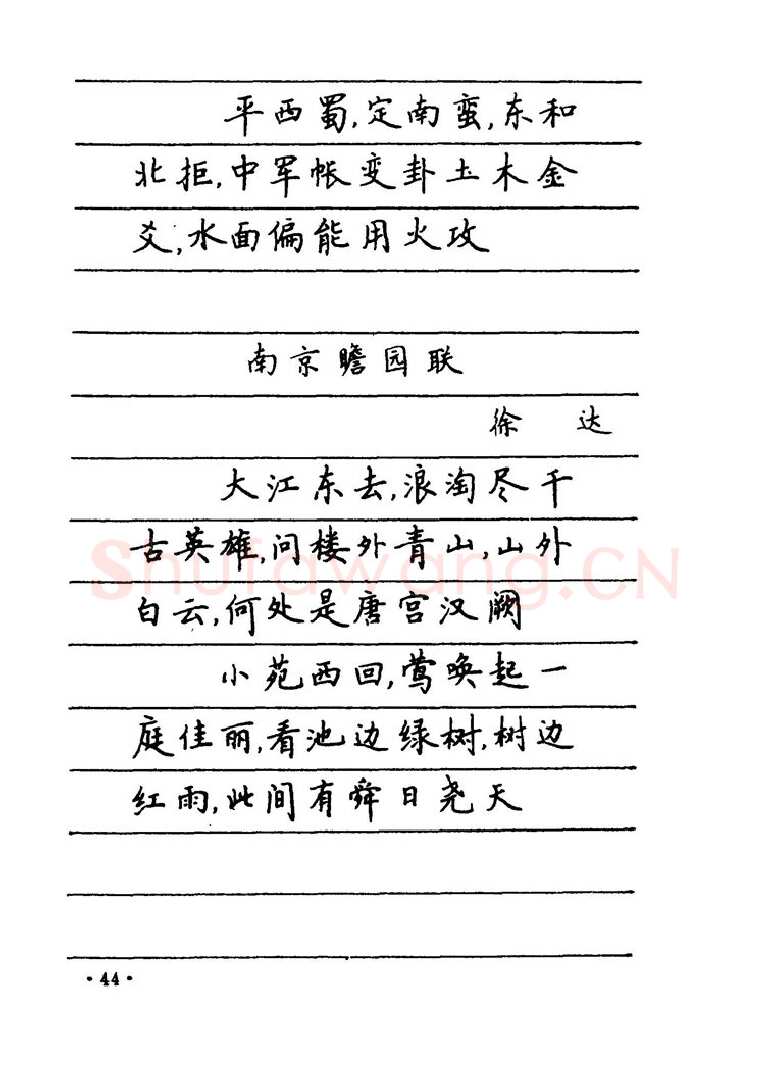 平西蜀,定南蛮,东和
北拒,中军帐变卦土木金
爻,水面偏能用火攻
南京瞻园联
徐 达
大江东去,浪淘尽千
古英雄,问楼外青山,山外
白云,何处是唐宫汉阙
小苑西回,莺唤起一
庭佳丽,看池边绿树,树边
红雨,此间有舜日尧天
·44·
Shufawang.CN